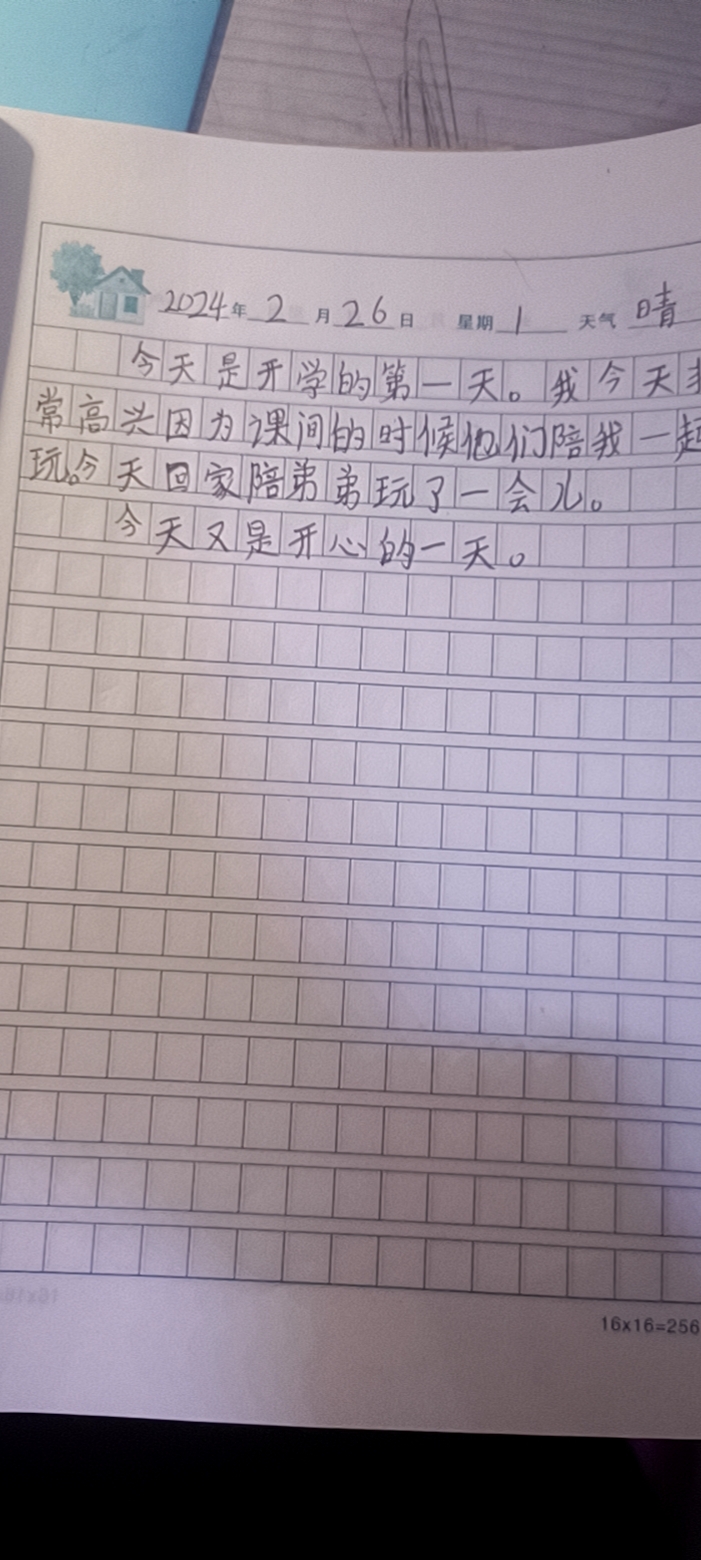 2024年 2 月 26 日 星期 1 天气 晴
今天是开学的第一天。我今天
常高兴因为课间的时候他们陪我一起
玩。今天回家陪弟弟玩了一会儿。
今天又是开心的一天。
16x16=256